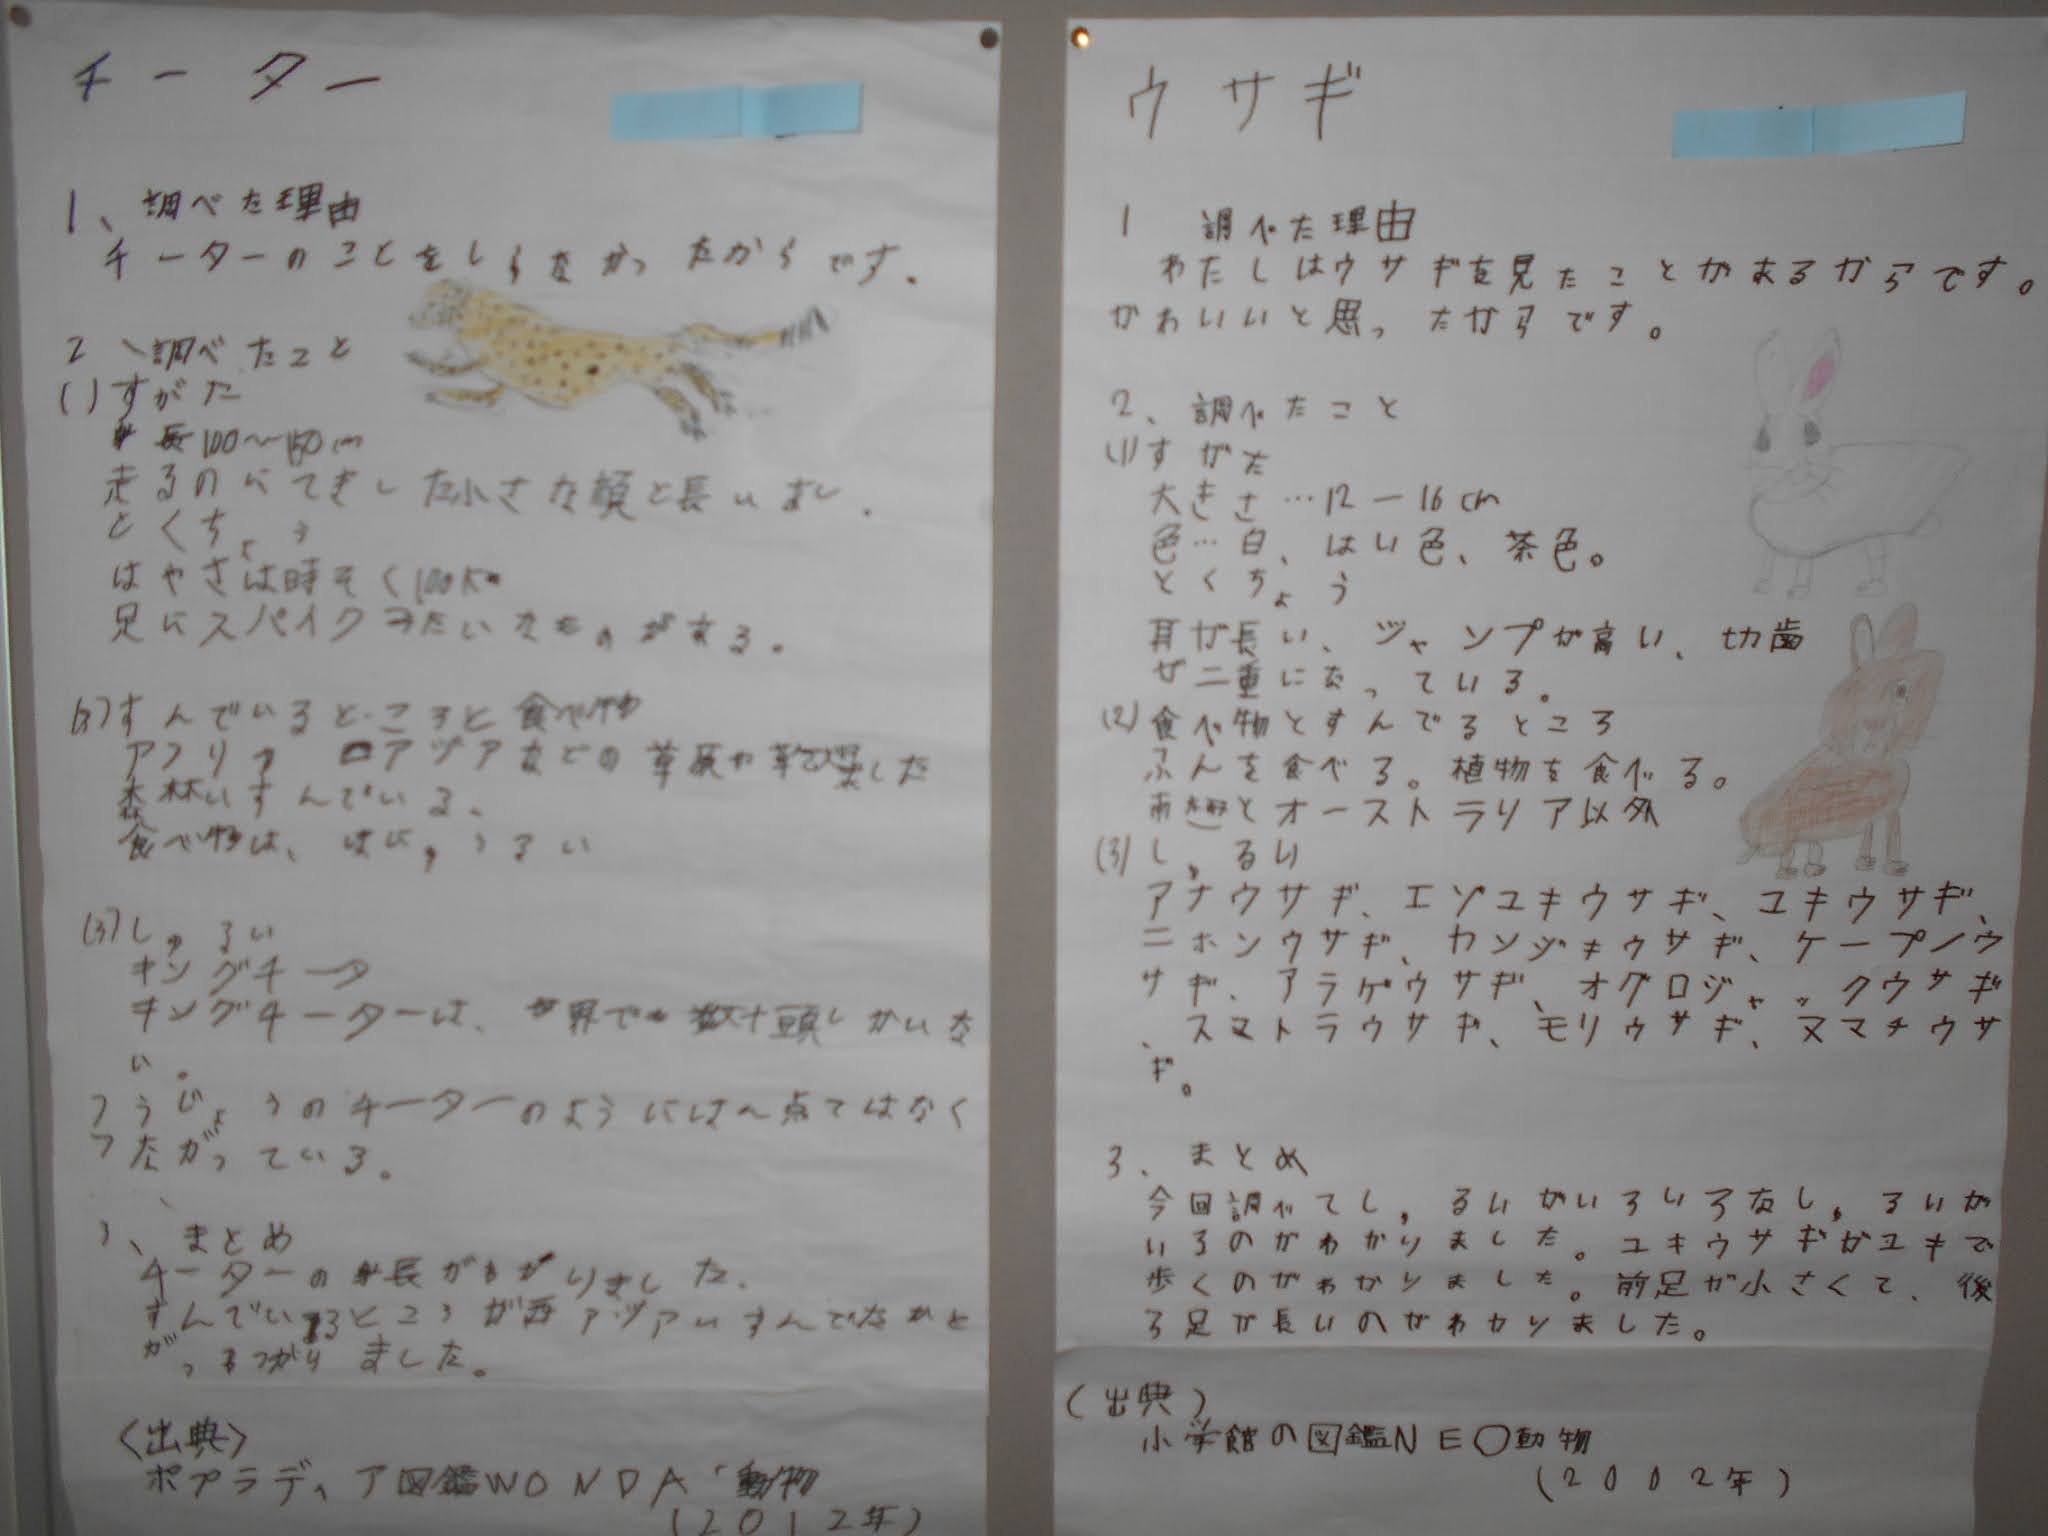 チーター
1、調べた理由
チーターのことをしらなかったからです。
2、調べたこと
(1)すがた
長100～150cm
走るのにてきした小さな顔と長い
とくちょう
はやさは時そく100km
足にスパイクみたいなものがある。
すんでいるところと食べ物
アジアなどの草原や
森林にすんでいる。
食べ物は、ほにゅうるい
(3)しゅるい
キングチータ
キングチーターは、世界でも数十頭しかいな
い。
ふうじょうのチーターのようにはん点てはなく
つながっている。
3、まとめ
チーターの長がわかりました。
すんでいるところが西アヅアにすんでたこと
がわかりました。
〈出典〉
ポプラディア図鑑WONDA 動物
(2012年)
ウサギ
1 調べた理由
わたしはウサギを見たことがあるからです。
かわいいと思ったからです。
2、調べたこと
(1)すがた
大きさ…12ー16cm
色…白、はい色、茶色。
とくちょう
耳が長い、ジャンプが高い、切歯
が二重になっている。
(2)食べ物とすんでるところ
ふんを食べる。植物を食べる。
とオーストラリア以外
(3)しゅるい
アナウサギ、エゾユキウサギ、ユキウサギ、
ニホンウサギ、カンジキウサギ、ケープノウ
サギ、アラゲウサギ、オグロジャックウサギ
、スマトラウサギ、モリウサギ、ヌマチウサ
ギ。
3、まとめ
今回調べてしゅるいがいろいろなしゅるいが
いるのがわかりました。ユキウサギがユキで
歩くのがわかりました。前足が小さくて、後
ろ足が長いのがわかりました。
(出典)
小学館の図鑑NEO動物
(2002年)